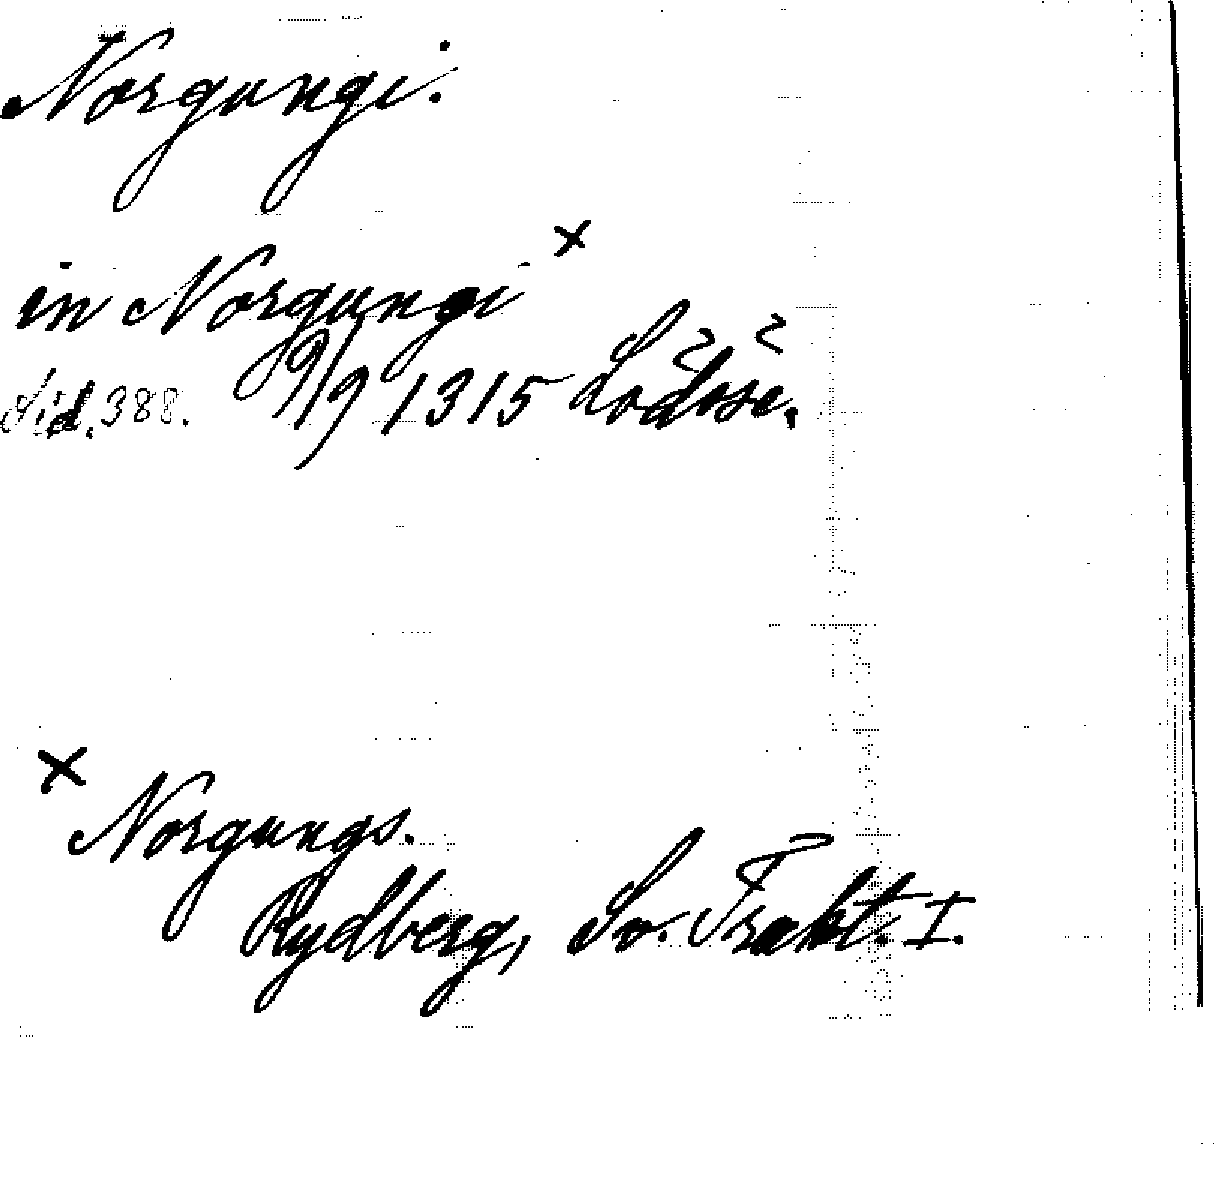 Norgungi.
in Norgungi ×
Sid. 388. 9/9 1315 Lödöse.
× Norgungs.
Rydberg, Sv. Trakt. I.